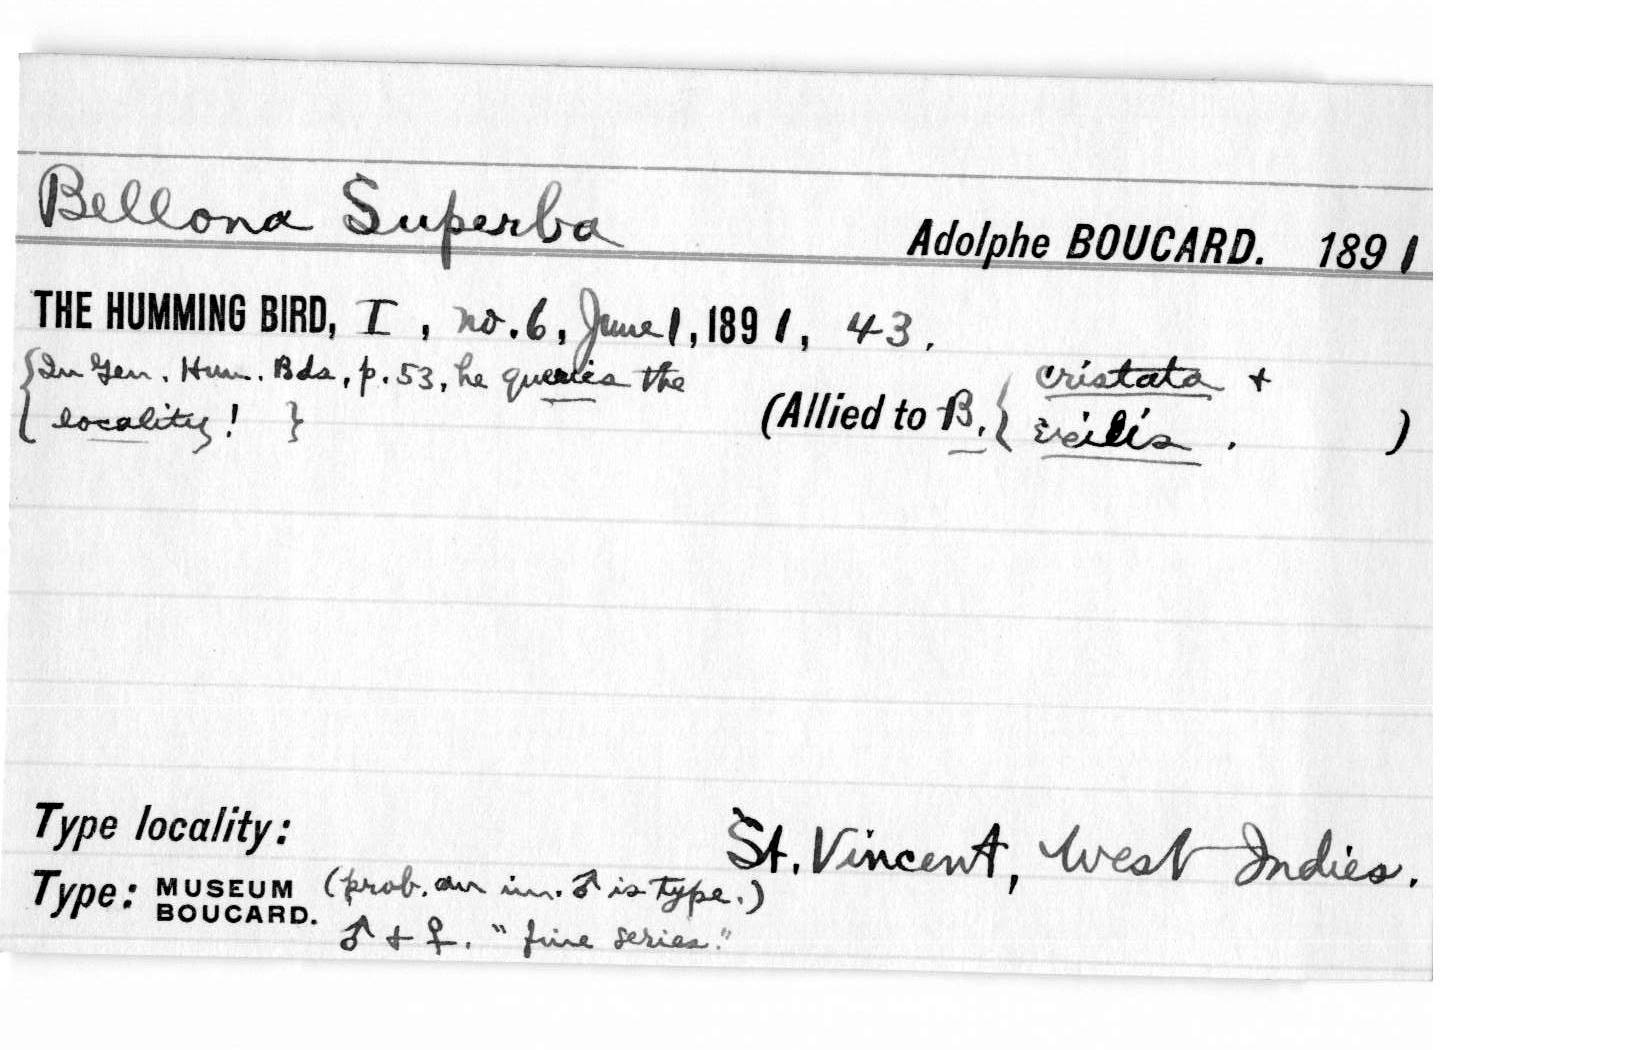 Bellona Superba
Adolphe BOUCARD. 1891
THE HUMMING BIRD, I, no. 6, June 1, 1891, 43.
{In Gen. Hum. Bds, p. 53, he queries the
locality! }
(Allied to B. { cristata +
exilis. )
Type locality: St. Vincent, West Indies.
Type: MUSEUM BOUCARD. (prob. an im. ♂ is type.)
♂ + ♀. "fine series."